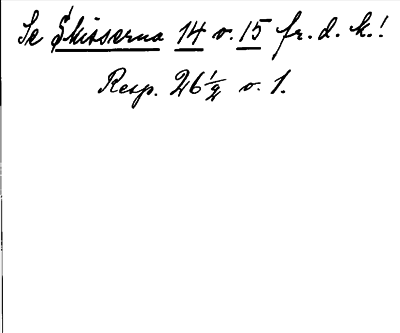 Se Skisserna 14 o. 15 fr. d. k.!
Resp. 26 1/2 o. 1.